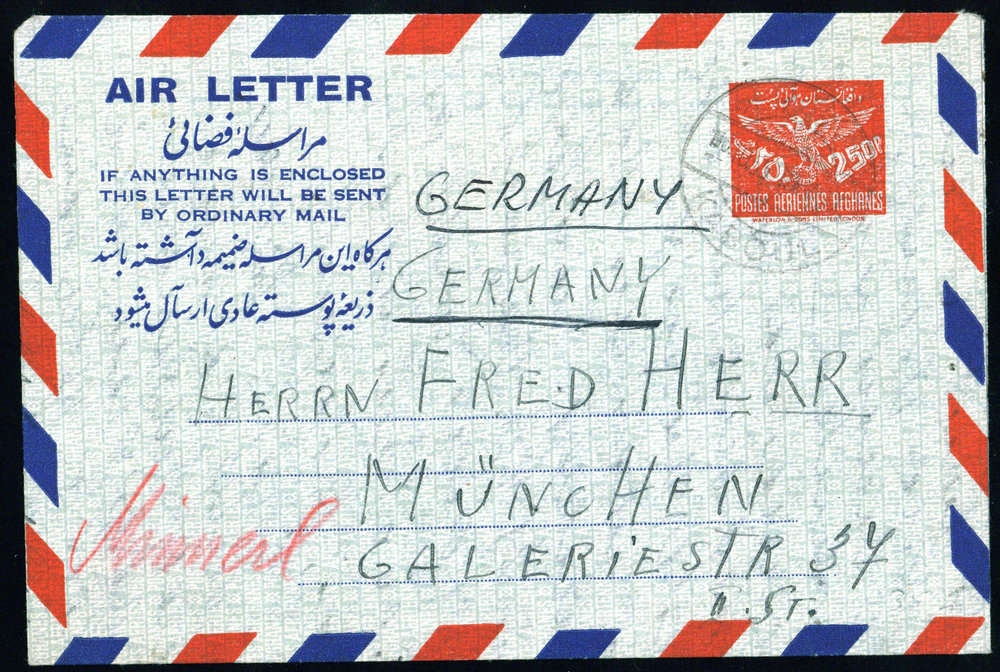 AIR LETTER
مراسلهٔ فضائی
IF ANYTHING IS ENCLOSED
THIS LETTER WILL BE SENT
BY ORDINARY MAIL
هرگاه این مراسله ضمیمه داشته باشد
ذریعهٔ پوسته عادی ارسال میشود
د افغانستان هوائی پست
250P
POSTES AERIENNES AFGHANES
WATERLOW & SONS LIMITED, LONDON
GERMANY
GERMANY
HERRN FRED HERR
MÜNCHEN
GALERIESTR 37
II. ST.